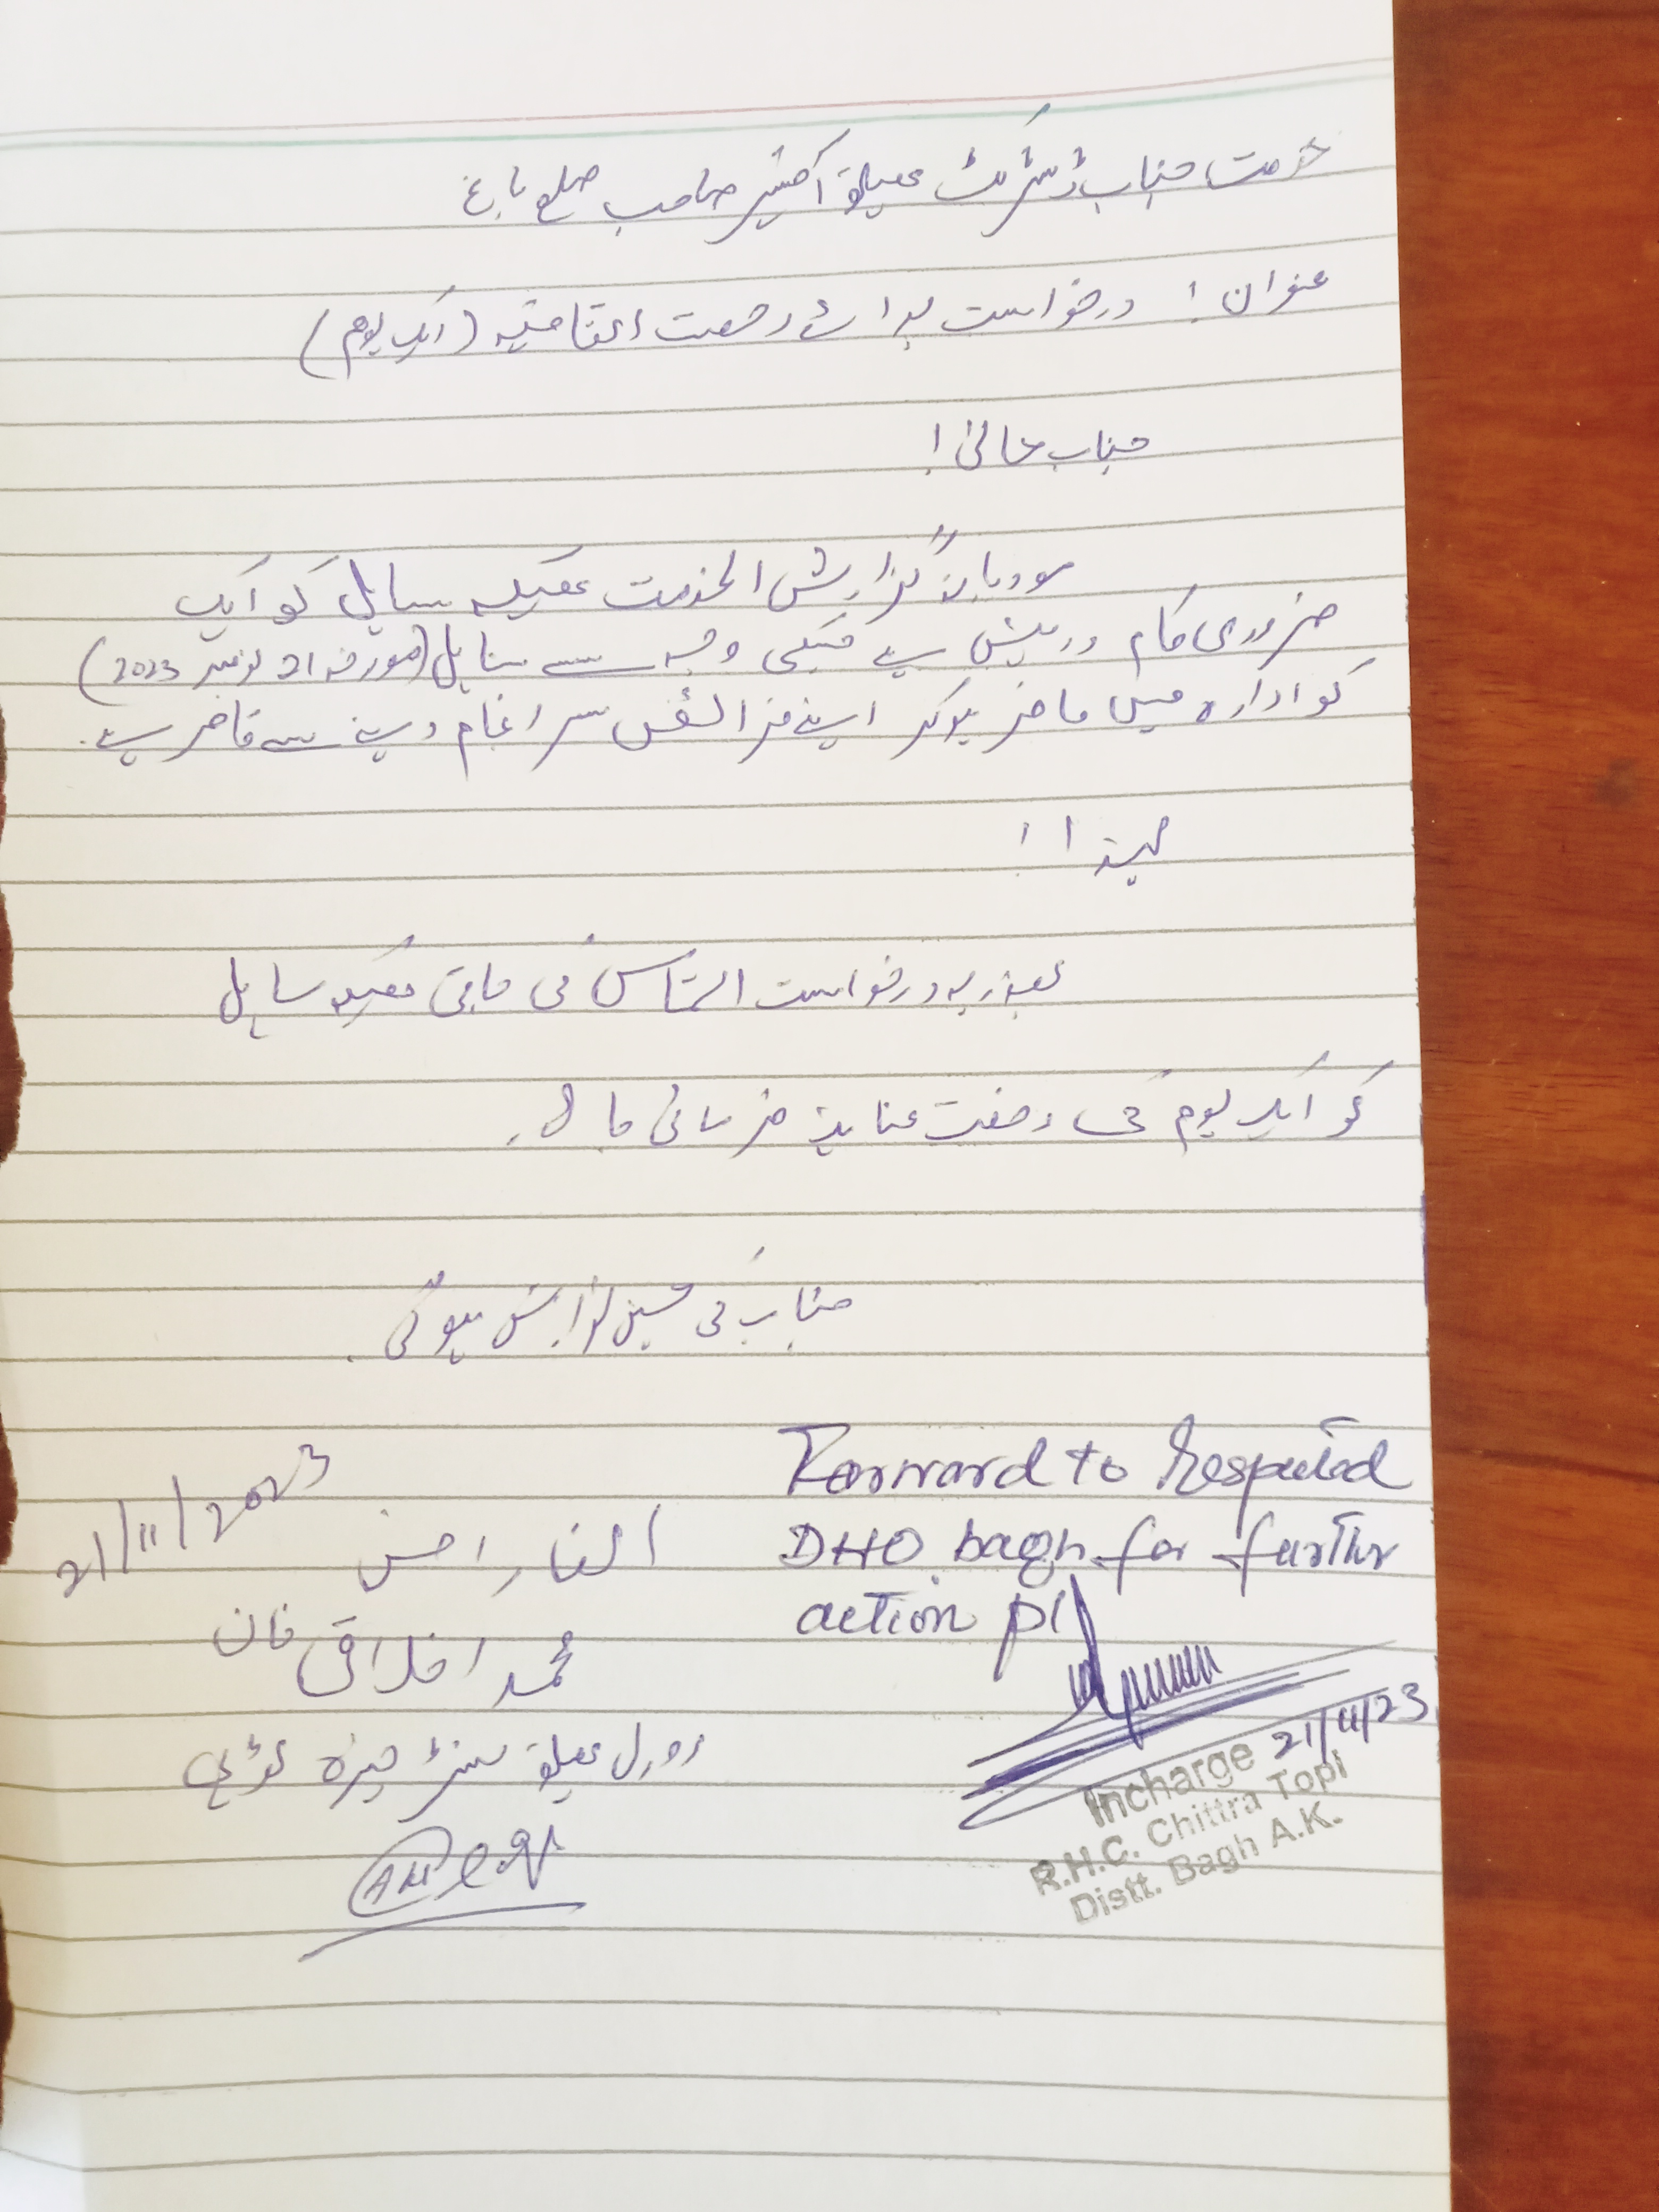 خدمت جناب ڈسٹرکٹ ہیلتھ آفیسر صاحب ضلع باغ
عنوان! درخواست برائے رخصت اتفاقیہ (ایک یوم)
جناب عالی!
مودبانہ گزارش الخدمت ھیکہ سایل کو ایک
ضروری کام درپیش ہے جسکی وجہ سے سایل (مورخہ 21 نومبر 2023)
کو ادارہ میں حاضر ہوکر اپنے فرائض سرانجام دینے سے قاصر ہے۔
لہذا!
بذریہ درخواست التماس کی جاتی ھیکہ سایل
کو ایک یوم کی رخصت عنایت فرمائی جائے۔
جناب کی عین نوازش ہوگی۔
21/11/2023
العارض
محمد اخلاق خان
رورل ہیلتھ سنٹر چترہ ٹوپی
Forward to Respected
DHO bagh for further
action pl
21/11/23
Incharge
R.H.C. Chittra Topi
Distt. Bagh A.K.